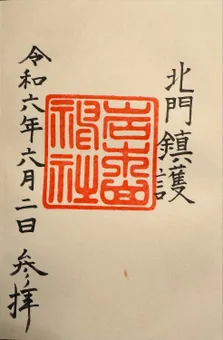 北門鎮護
岩木山
神社
令和六年六月二日 参拝